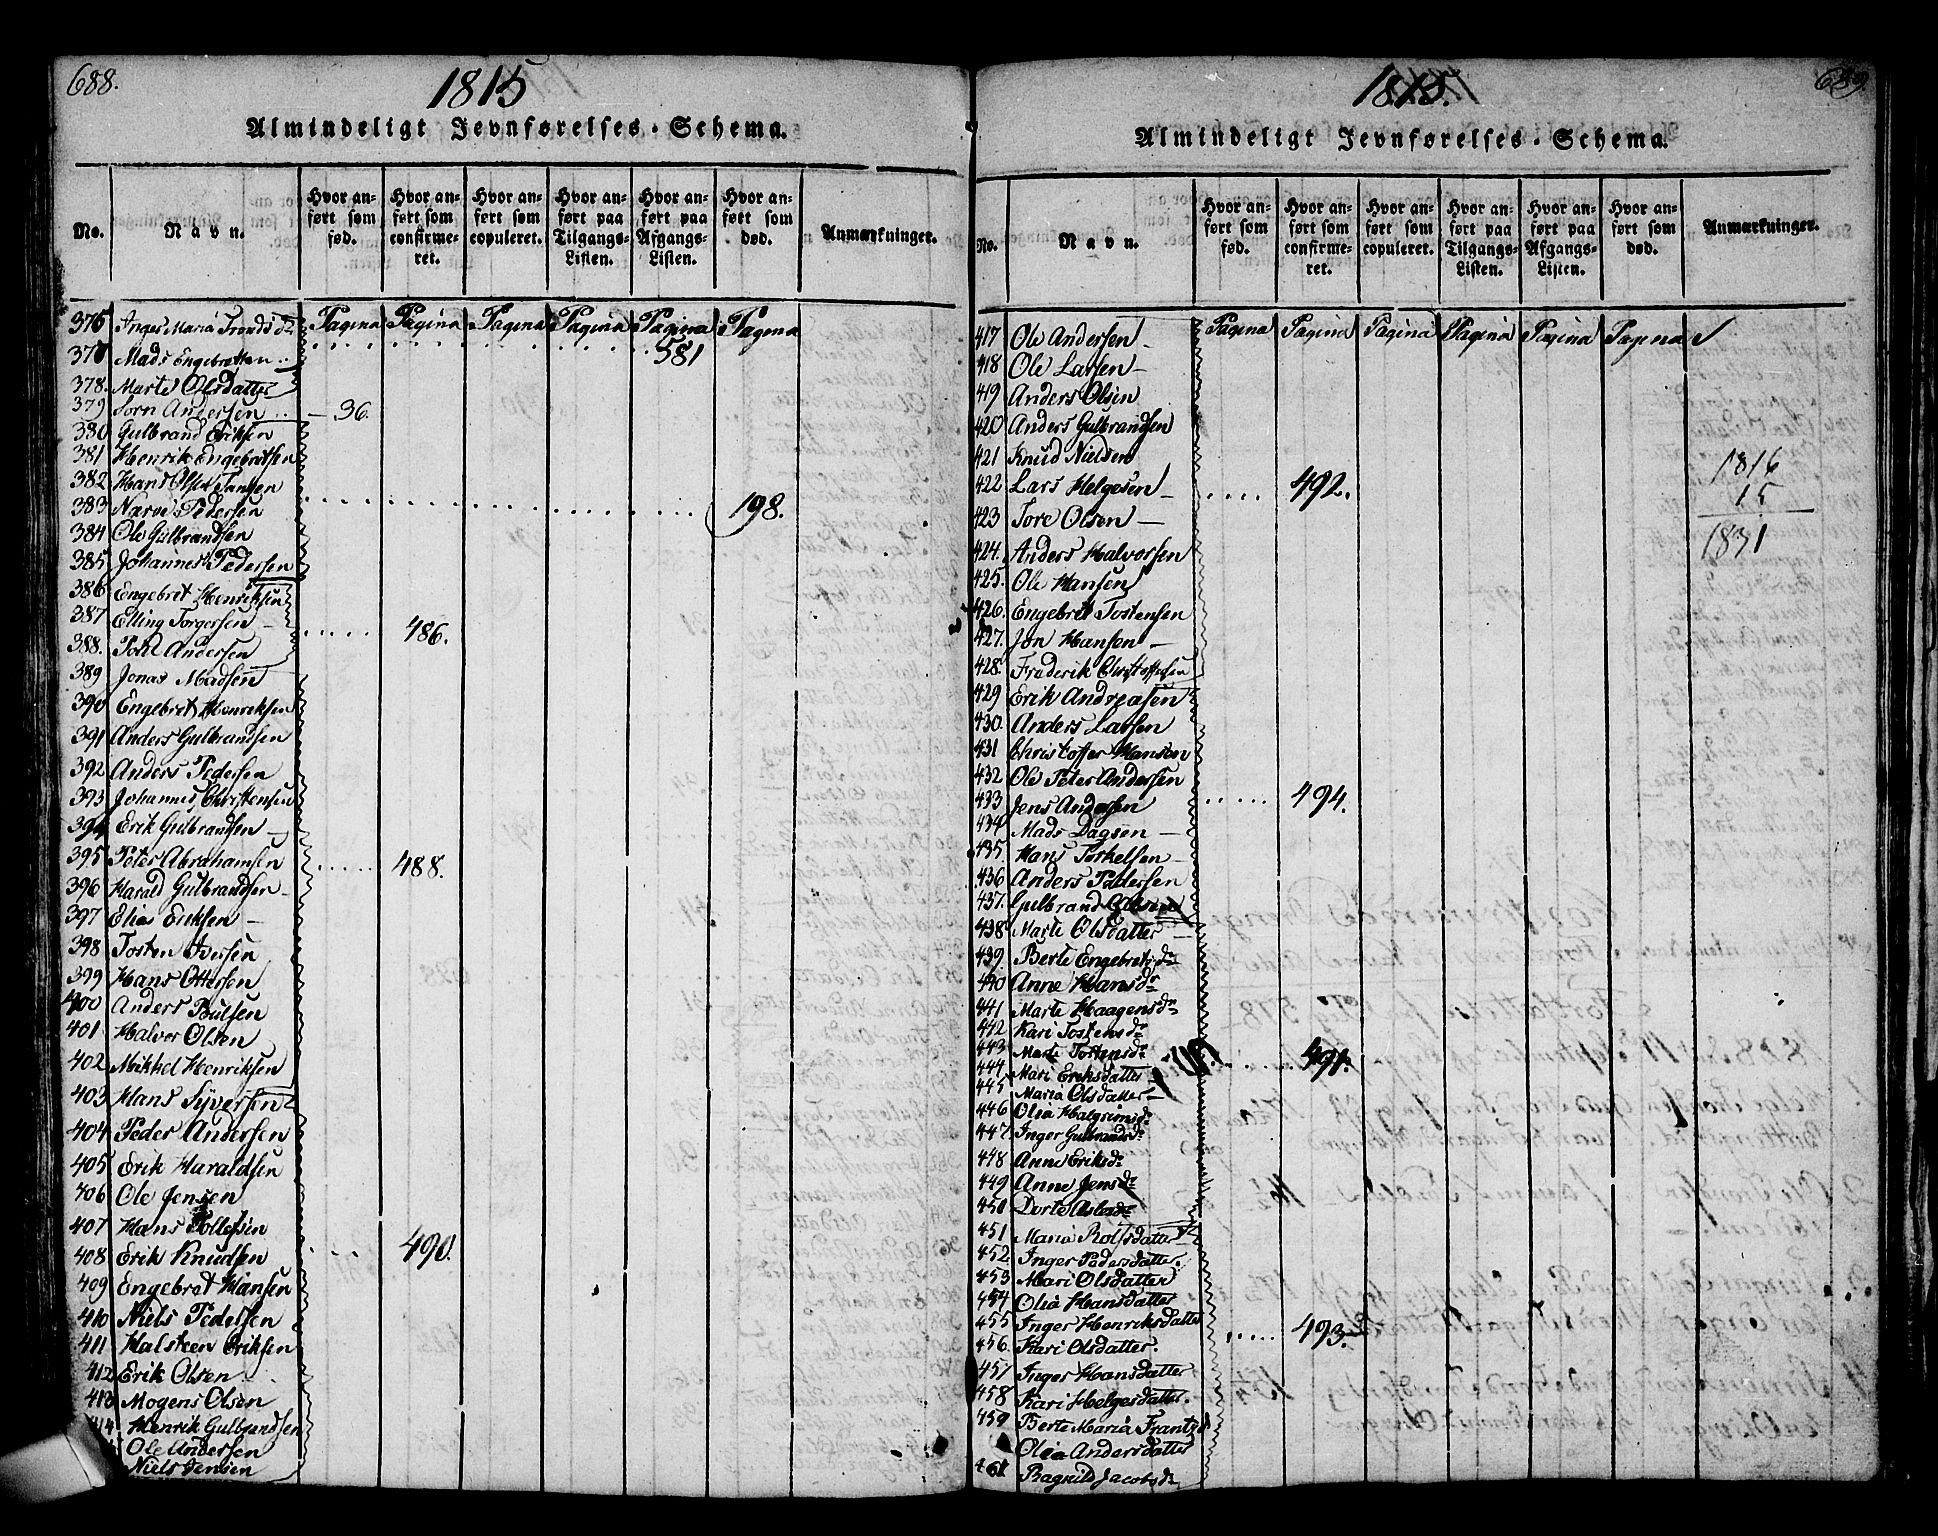 688.
1815
Almindeligt Jevnførelses-Schema.
No.
Navn.
Hvor anført som fød.
Hvor anført som confirmeret.
Hvor anført som copuleret.
Hvor anført paa Tilgangs-Listen.
Hvor anført paa Afgangs-Listen.
Hvor anført som død.
Anmærkninger.
376 Inger Maria Tronds dr Pagina Pagina Pagina Pagina Pagina Pagina
377 Mads Engebretsen 581
378. Marte Olsdatter
379 Jørn Andersen 36.
380 Gulbrand Eriksen
381 Henrik Engebretsen
382 Hans Olsen
383 Narve Pedersen 198.
384 Ole Gulbrandsen
385 Johannes Pedersen
386 Engebret Henriksen
387 Elling Torgersen 486.
388. Poul Andersen
389 Jonas Madsen
390 Engebret Henriksen
391 Anders Gulbrandsen
392 Anders Pedersen
393 Johannes Christensen
394 Erik Gulbrandsen
395 Peter Abrahamsen 488.
396 Harald Gulbrandsen
397 Elias Eriksen
398 Tosten Iversen
399 Hans Ottersen
400 Anders Poulsen
401 Halvor Olsen
402 Mikkel Henriksen
403 Hans Syversen
404 Peder Andersen
405 Erik Haraldsen
406 Ole Jensen
407 Hans Tollefsen
408 Erik Knudsen 490.
409 Engebret Hansen
410 Niels Pedersen
411 Halsteen Eriksen
412 Erik Olsen
413 Mogens Olsen
414 Henrik Gulbrandsen
Ole Andersen
Niels Jensen
689.
1815.
Almindeligt Jevnførelses-Schema.
No.
Navn.
Hvor anført som fød.
Hvor anført som confirmeret.
Hvor anført som copuleret.
Hvor anført paa Tilgangs-Listen.
Hvor anført paa Afgangs-Listen.
Hvor anført som død.
Anmærkninger.
417 Ole Andersen Pagina Pagina Pagina Pagina Pagina Pagina
418 Ole Larsen
419 Anders Olsen
420 Anders Gulbrandsen
421 Knud Nielsen
422 Lars Helgesen 492.
423 Tore Olsen
424. Anders Halvorsen
425. Ole Hansen
426. Engebret Tostensen
427. Jon Hansen
428. Frederik Christoffersen
429 Erik Andreasen
430. Anders Larsen
431 Christoffer Hansen
432 Ole Peter Andersen
433 Jens Andersen 494.
434 Mads Dagsen
435. Hans Torkelsen
436 Anders Pedersen
437. Gulbrand Olsen
438 Marte Olsdatter
439. Berte Engebretsdr
440 Anne Hansdr
441 Marte Haagensdr
442 Kari Tostensdr
443 Marte Tostensdr 491.
444 Mari Eriksdatter
445 Maria Olsdatter
446 Olia Halgrimsdr
447 Inger Gulbrandsdr
448 Anne Eriksdr
449 Anne Jensdr
450 Dorte
451 Maria Rolfsdatter
452 Inger Pedersdatter.
453 Mari Olsdatter
454 Olia Hansdatter
455 Inger Henriksdatter 493.
456. Kari Olsdatter.
457 Inger Hansdatter
458 Kari Helgesdatter.
459 Berte Maria Frantzd
Olia Andersdatter
461 Ragnild Jacobsdr
1816
15
1831